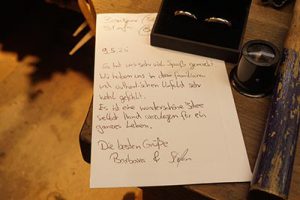 9.5.25
Es hat uns sehr viel Spaß gemacht
Wir haben uns in dieser familiären
und authentischen Umfeld sehr
wohl gefühlt.
Es ist eine wunderschöne Idee
selbst Hand anzulegen für ein
ganzes Leben.
Die besten Grüße
Barbara &